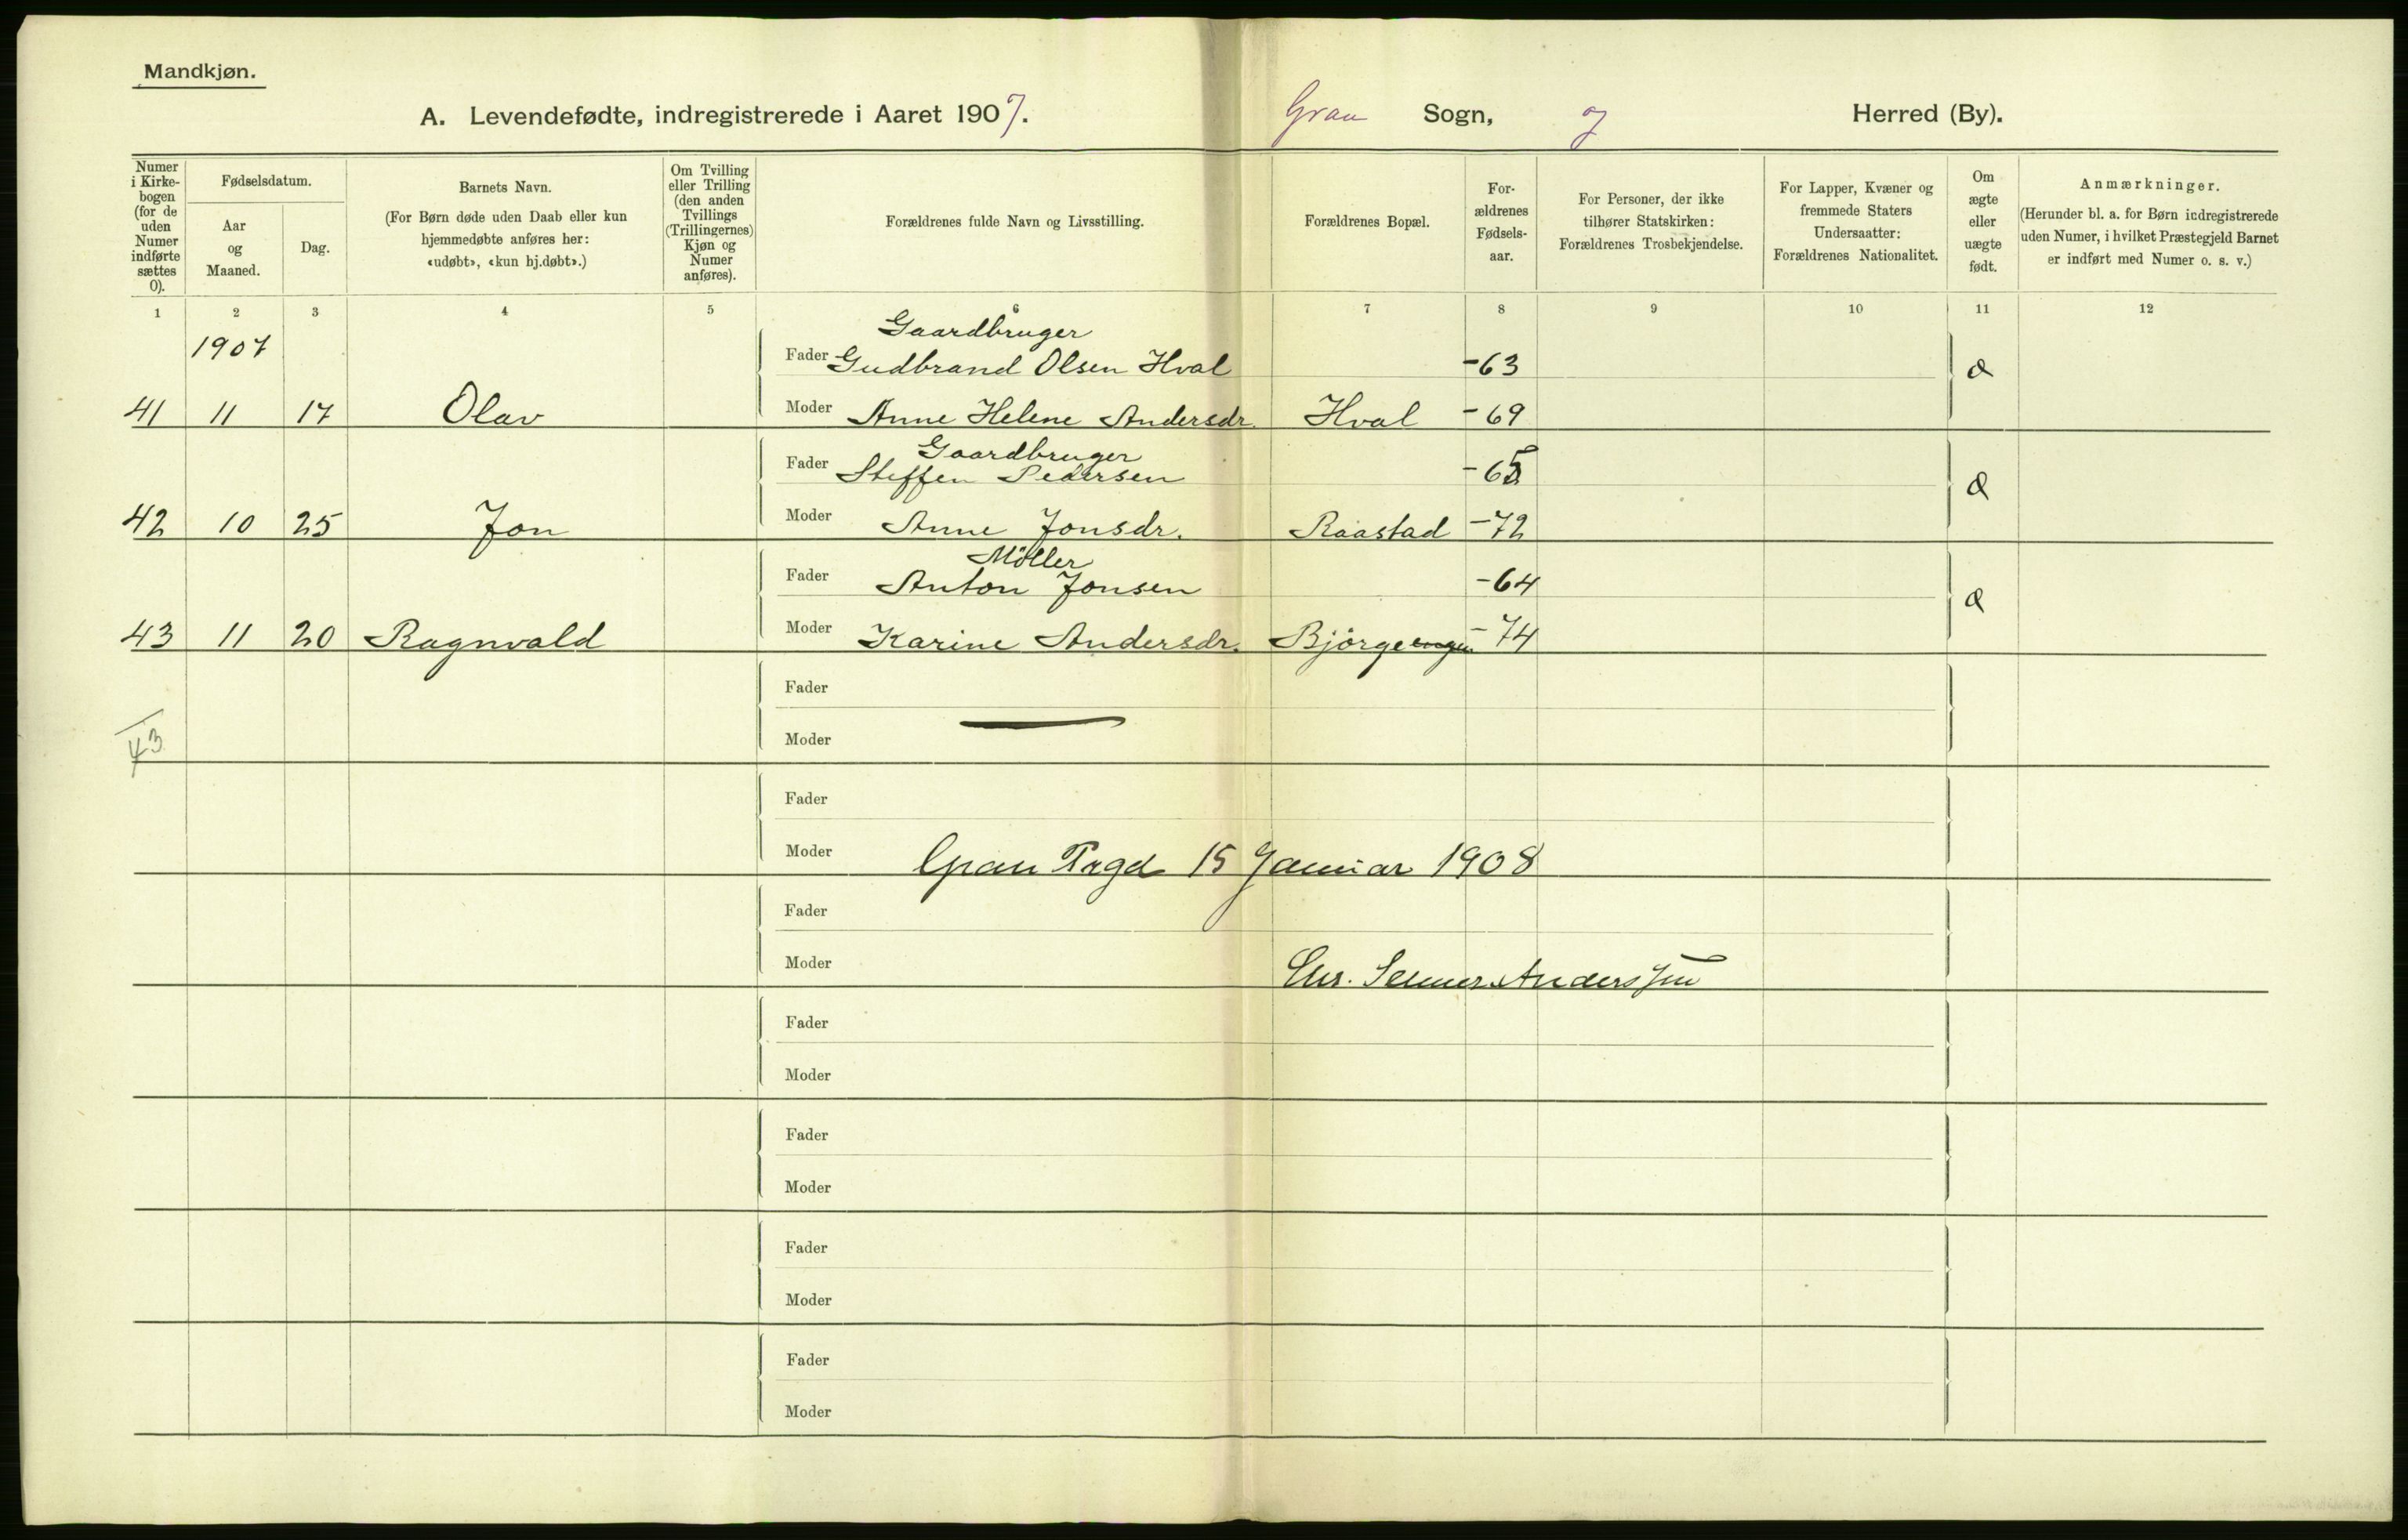 Mandkjøn.
A. Levendefødte, indregistrerede i Aaret 1907. Gran Sogn, og Herred (By).
Numer i Kirkebogen (for de uden Numer indførte sættes 0).
Fødselsdatum.
Aar og Maaned.
Dag.
Barnets Navn.
(For Børn døde uden Daab eller kun
hjemmedøbte anføres her:
«udøbt», «kun hj.døbt».)
Om Tvilling
eller Trilling
(den anden
Tvillings
(Trillingernes)
Kjøn og
Numer
anføres).
Forældrenes fulde Navn og Livsstilling.
Forældrenes Bopæl.
For-
ældrenes
Fødsels-
aar.
For Personer, der ikke
tilhører Statskirken:
Forældrenes Trosbekjendelse.
For Lapper, Kvæner og
fremmede Staters
Undersaatter:
Forældrenes Nationalitet.
Om
ægte
eller
uægte
født.
Anmærkninger.
(Herunder bl. a. for Børn indregistrerede
uden Numer, i hvilket Præstegjeld Barnet
er indført med Numer o. s. v.)
1 2 3 4 5 6 7 8 9 10 11 12
1907
Gaardbruger
Fader Gudbrand Olsen Hval -63
41 11 17 Olav Moder Anne Helene Andersdr. Hval -69
Gaardbruger
Fader Steffen Pedersen -65
42 10 25 Jon Moder Anne Jonsdr. Raastad -72
Möller
Fader Anton Jonsen -64
43 11 20 Ragnvald Moder Karine Andersdr. Björgeengen -74
Fader
43
Moder
Fader
Moder
Gran Prgd 15 Januar 1908
Fader
Moder
Chr. Senner Anderssen
Fader
Moder
Fader
Moder
Fader
Moder
Fader
Moder